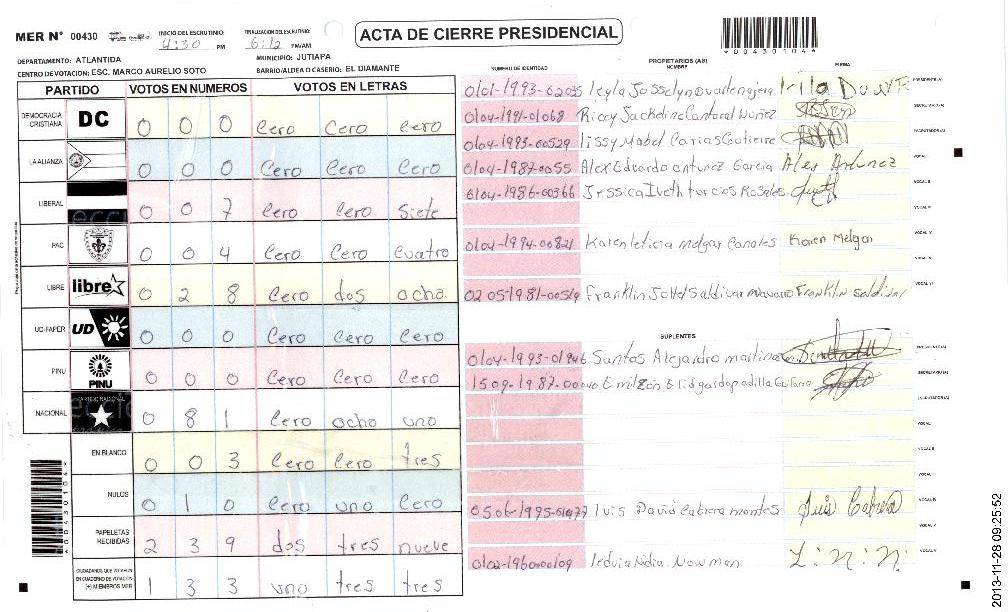 MER N° 00430
INICIO DEL ESCRUTINIO: 4:30 PM
FINALIZACION DEL ESCRUTINIO: 6:12 PM/AM
ACTA DE CIERRE PRESIDENCIAL
*00430104*
DEPARTAMENTO: ATLANTIDA
MUNICIPIO: JUTIAPA
CENTRO DE VOTACION: ESC. MARCO AURELIO SOTO
BARRIO/ALDEA O CASERIO: EL DIAMANTE
PARTIDO VOTOS EN NUMEROS VOTOS EN LETRAS
DEMOCRACIA CRISTIANA DC 0 0 0 Cero Cero Cero
LA ALIANZA 0 0 0 Cero Cero Cero
LIBERAL 0 0 7 Cero Cero Siete
PAC 0 0 4 Cero Cero Cuatro
LIBRE libre 0 2 8 Cero dos ocho
UD-FAPER UD 0 0 0 Cero Cero Cero
PINU PINU 0 0 0 Cero Cero Cero
NACIONAL PARTIDO NACIONAL 0 8 1 Cero ocho uno
EN BLANCO 0 0 3 Cero Cero tres
NULOS 0 1 0 Cero uno Cero
PAPELETAS RECIBIDAS 2 3 9 dos tres nueve
CIUDADANOS QUE VOTARON EN CUADERNO DE VOTACION (+) MIEMBROS MER 1 3 3 uno tres tres
*00430104*
PROPIETARIOS (AS)
NUMERO DE IDENTIDAD NOMBRE FIRMA
leyla Josselyn PRESIDENTE(A)
0104-1991-01068 Riccy Jackeline Cantoral Nuñez SECRETARIO(A)
0104-1993-00529 lissy Mabel Carias Gutierre ESCRUTADOR(A)
0104-1987-0055 Alex Edvardo antunez Garcia Alex Antunez VOCAL I
0104-1986-00366 Jessica Iveth turcios Rosales VOCAL II
VOCAL III
0104-1994-00821 Karen leticia melgar Canales Karen Melgar VOCAL IV
VOCAL V
0205-1981-00519 Franklin Franklin saldivar VOCAL VI
SUPLENTES
0104-1993-01946 Santos Alejandro martinez PRESIDENTE(A)
1509-1987- padilla SECRETARIO(A)
ESCRUTADOR(A)
VOCAL I
VOCAL II
VOCAL III
0506-1995- luis David Cabrera montes Luis Cabrera VOCAL IV
VOCAL V
ledvia Nidia Nowman L.N.N. VOCAL VI
2013-11-28 09:25:52